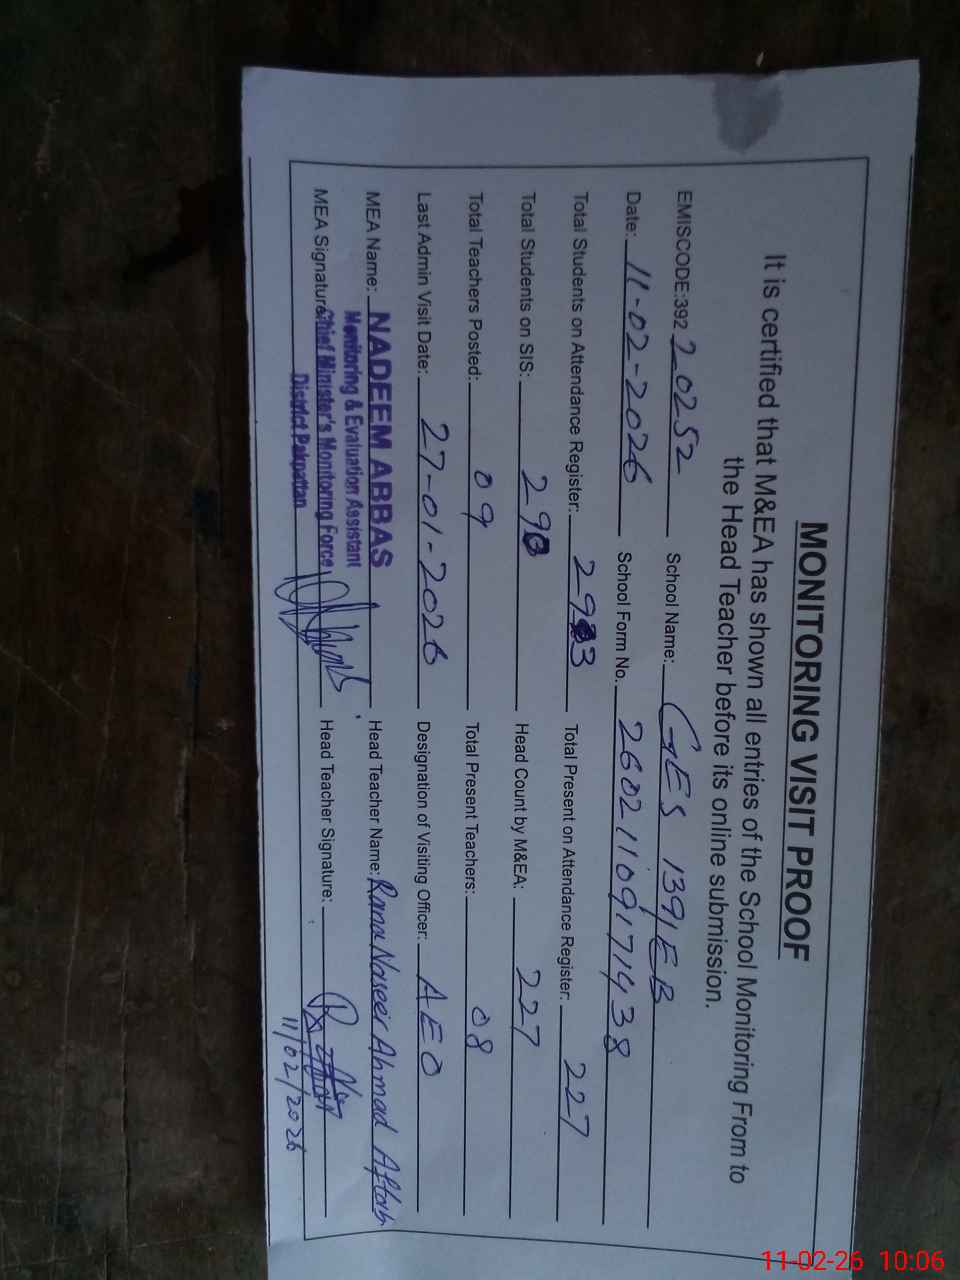 MONITORING VISIT PROOF
It is certified that M&EA has shown all entries of the School Monitoring From to
the Head Teacher before its online submission.
EMISCODE:392 20252 School Name: GES 139/EB
Date: 11-02-2026 School Form No. 26021109171938
Total Students on Attendance Register: 293 Total Present on Attendance Register: 227
Total Students on SIS: 290 Head Count by M&EA: 227
Total Teachers Posted: 09 Total Present Teachers: 08
Last Admin Visit Date: 27-01-2026 Designation of Visiting Officer: AEO
MEA Name: NADEEM ABBAS Head Teacher Name: Rana Naseer Ahmad Aftab
Monitoring & Evaluation Assistant
MEA Signature: Chief Minister's Monitoring Force Head Teacher Signature:
District Pakpattan
11/02/2026
11-02-26 10:06